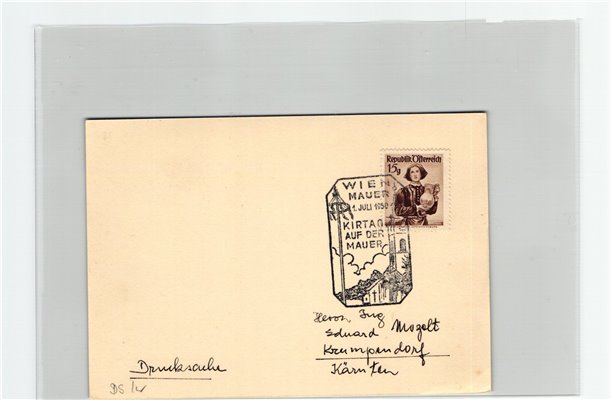 Republik Österreich
15g
WIEN
MAUER
1. JULI 1950
KIRTAG
AUF DER
MAUER
Herrn Ing
Eduard Mozelt
Krumpendorf
Kärnten
Drucksache